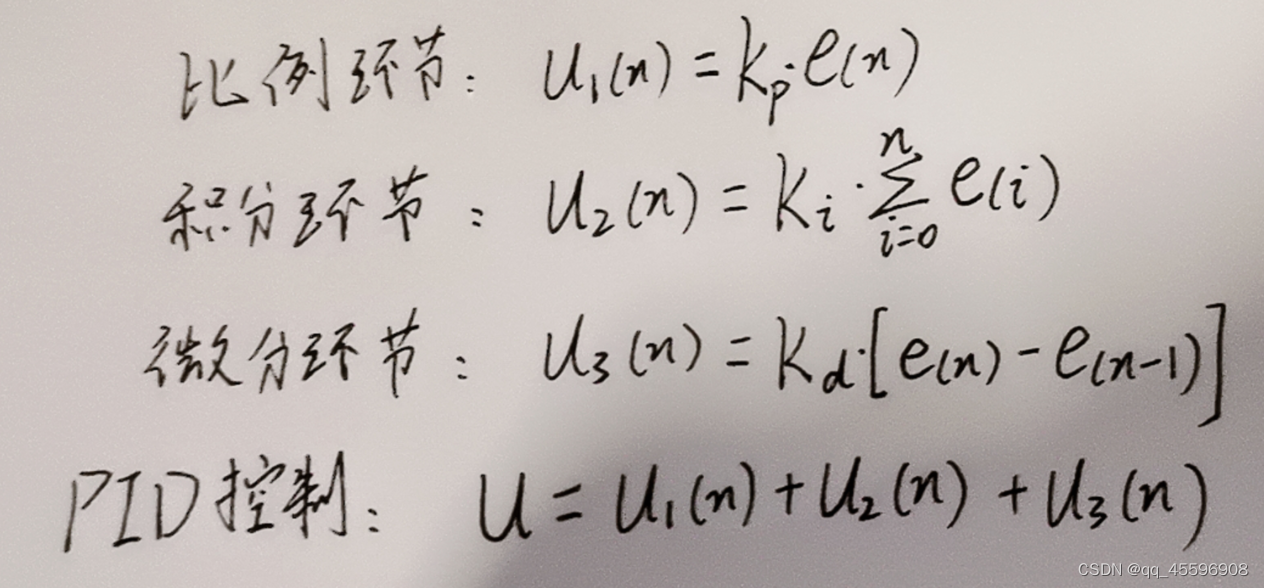 比例环节： u₁(n) = kₚ·e(n)
积分环节： u₂(n) = kᵢ·∑ⁿᵢ₌₀ e(i)
微分环节： u₃(n) = k_d·[e(n) - e(n-1)]
PID控制： u = u₁(n) + u₂(n) + u₃(n)
CSDN @qq_45596908